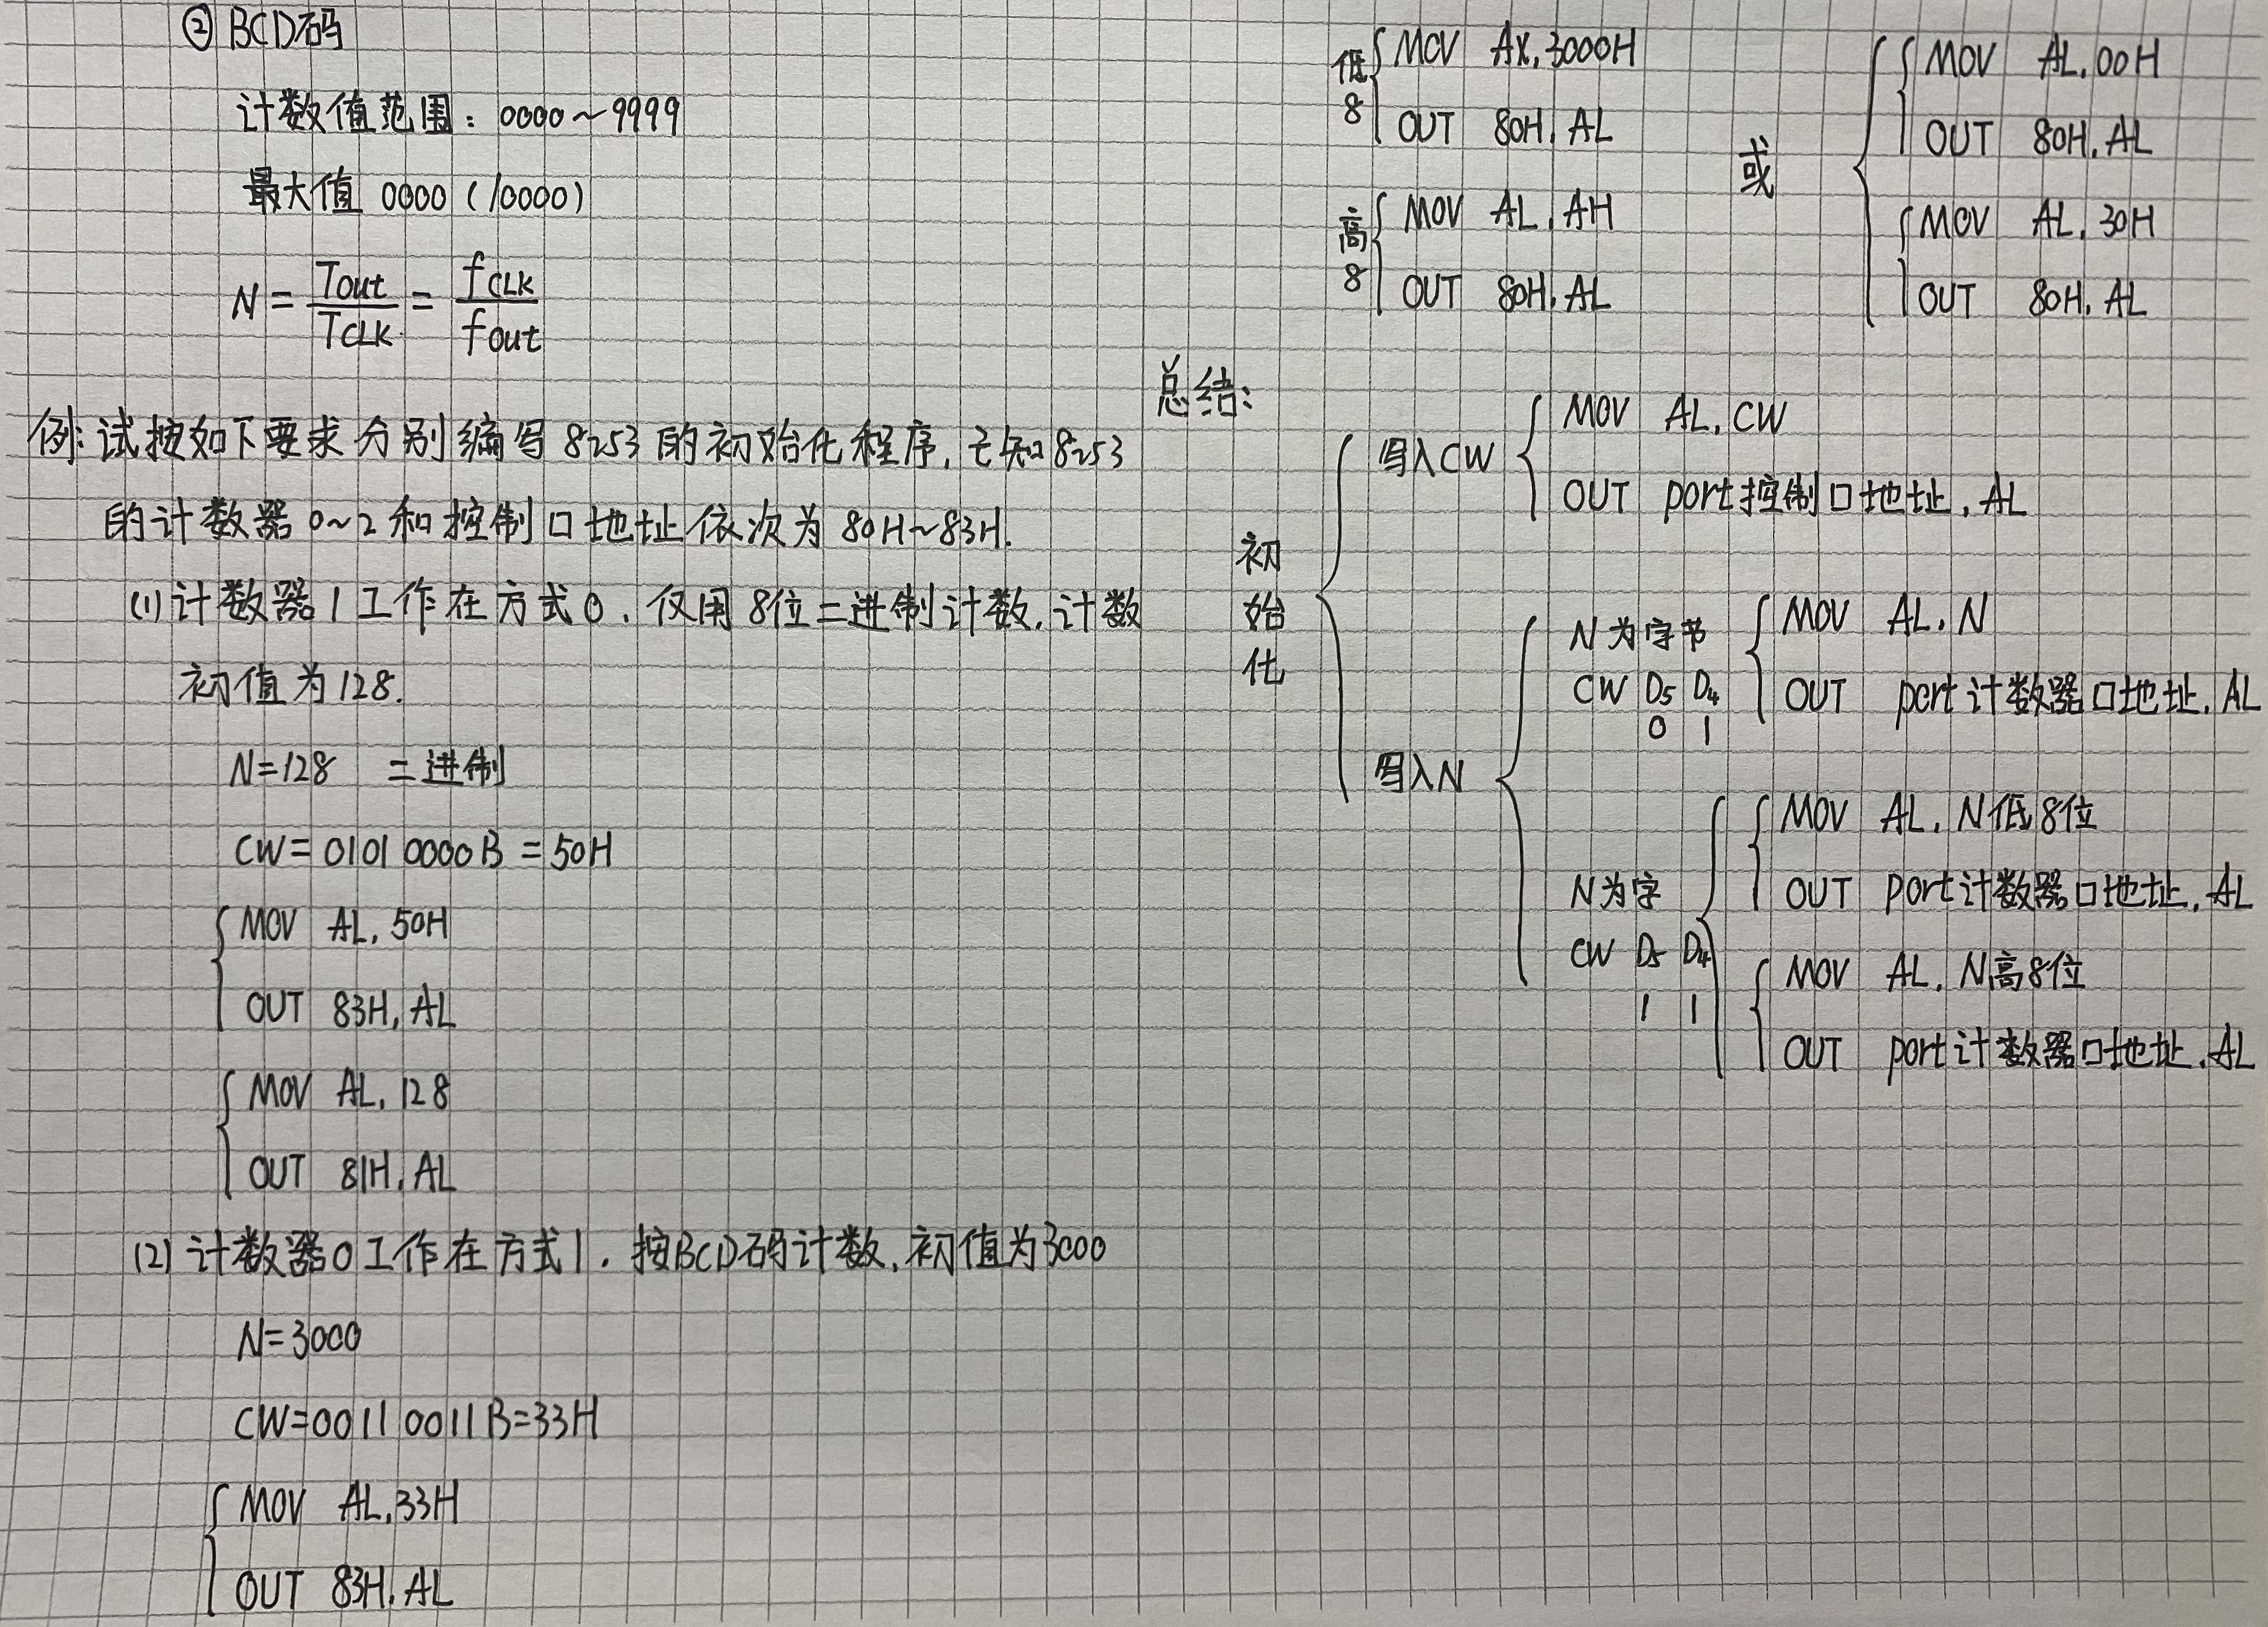 ② BCD码
计数值范围：0000～9999
最大值 0000（10000）
N = Tout/TCLK = fCLK/fout
例：试按如下要求分别编写8253的初始化程序，已知8253
的计数器0~2和控制口地址依次为80H~83H.
(1) 计数器1工作在方式0，仅用8位二进制计数，计数
初值为128.
N=128 二进制
CW= 0101 0000B = 50H
MOV AL, 50H
OUT 83H, AL
MOV AL, 128
OUT 81H, AL
(2) 计数器0工作在方式1，按BCD码计数，初值为3000
N=3000
CW=0011 0011B=33H
MOV AL, 33H
OUT 83H, AL
低8 MOV AX, 3000H
OUT 80H, AL
高8 MOV AL, AH
OUT 80H, AL
或
MOV AL, 00H
OUT 80H, AL
MOV AL, 30H
OUT 80H, AL
总结：
初始化
写入CW
MOV AL, CW
OUT port控制口地址, AL
写入N
N为字节
CW D5 D4
0 1
MOV AL, N
OUT port计数器口地址, AL
N为字
CW D5 D4
1 1
MOV AL, N低8位
OUT port计数器口地址, AL
MOV AL, N高8位
OUT port计数器口地址, AL